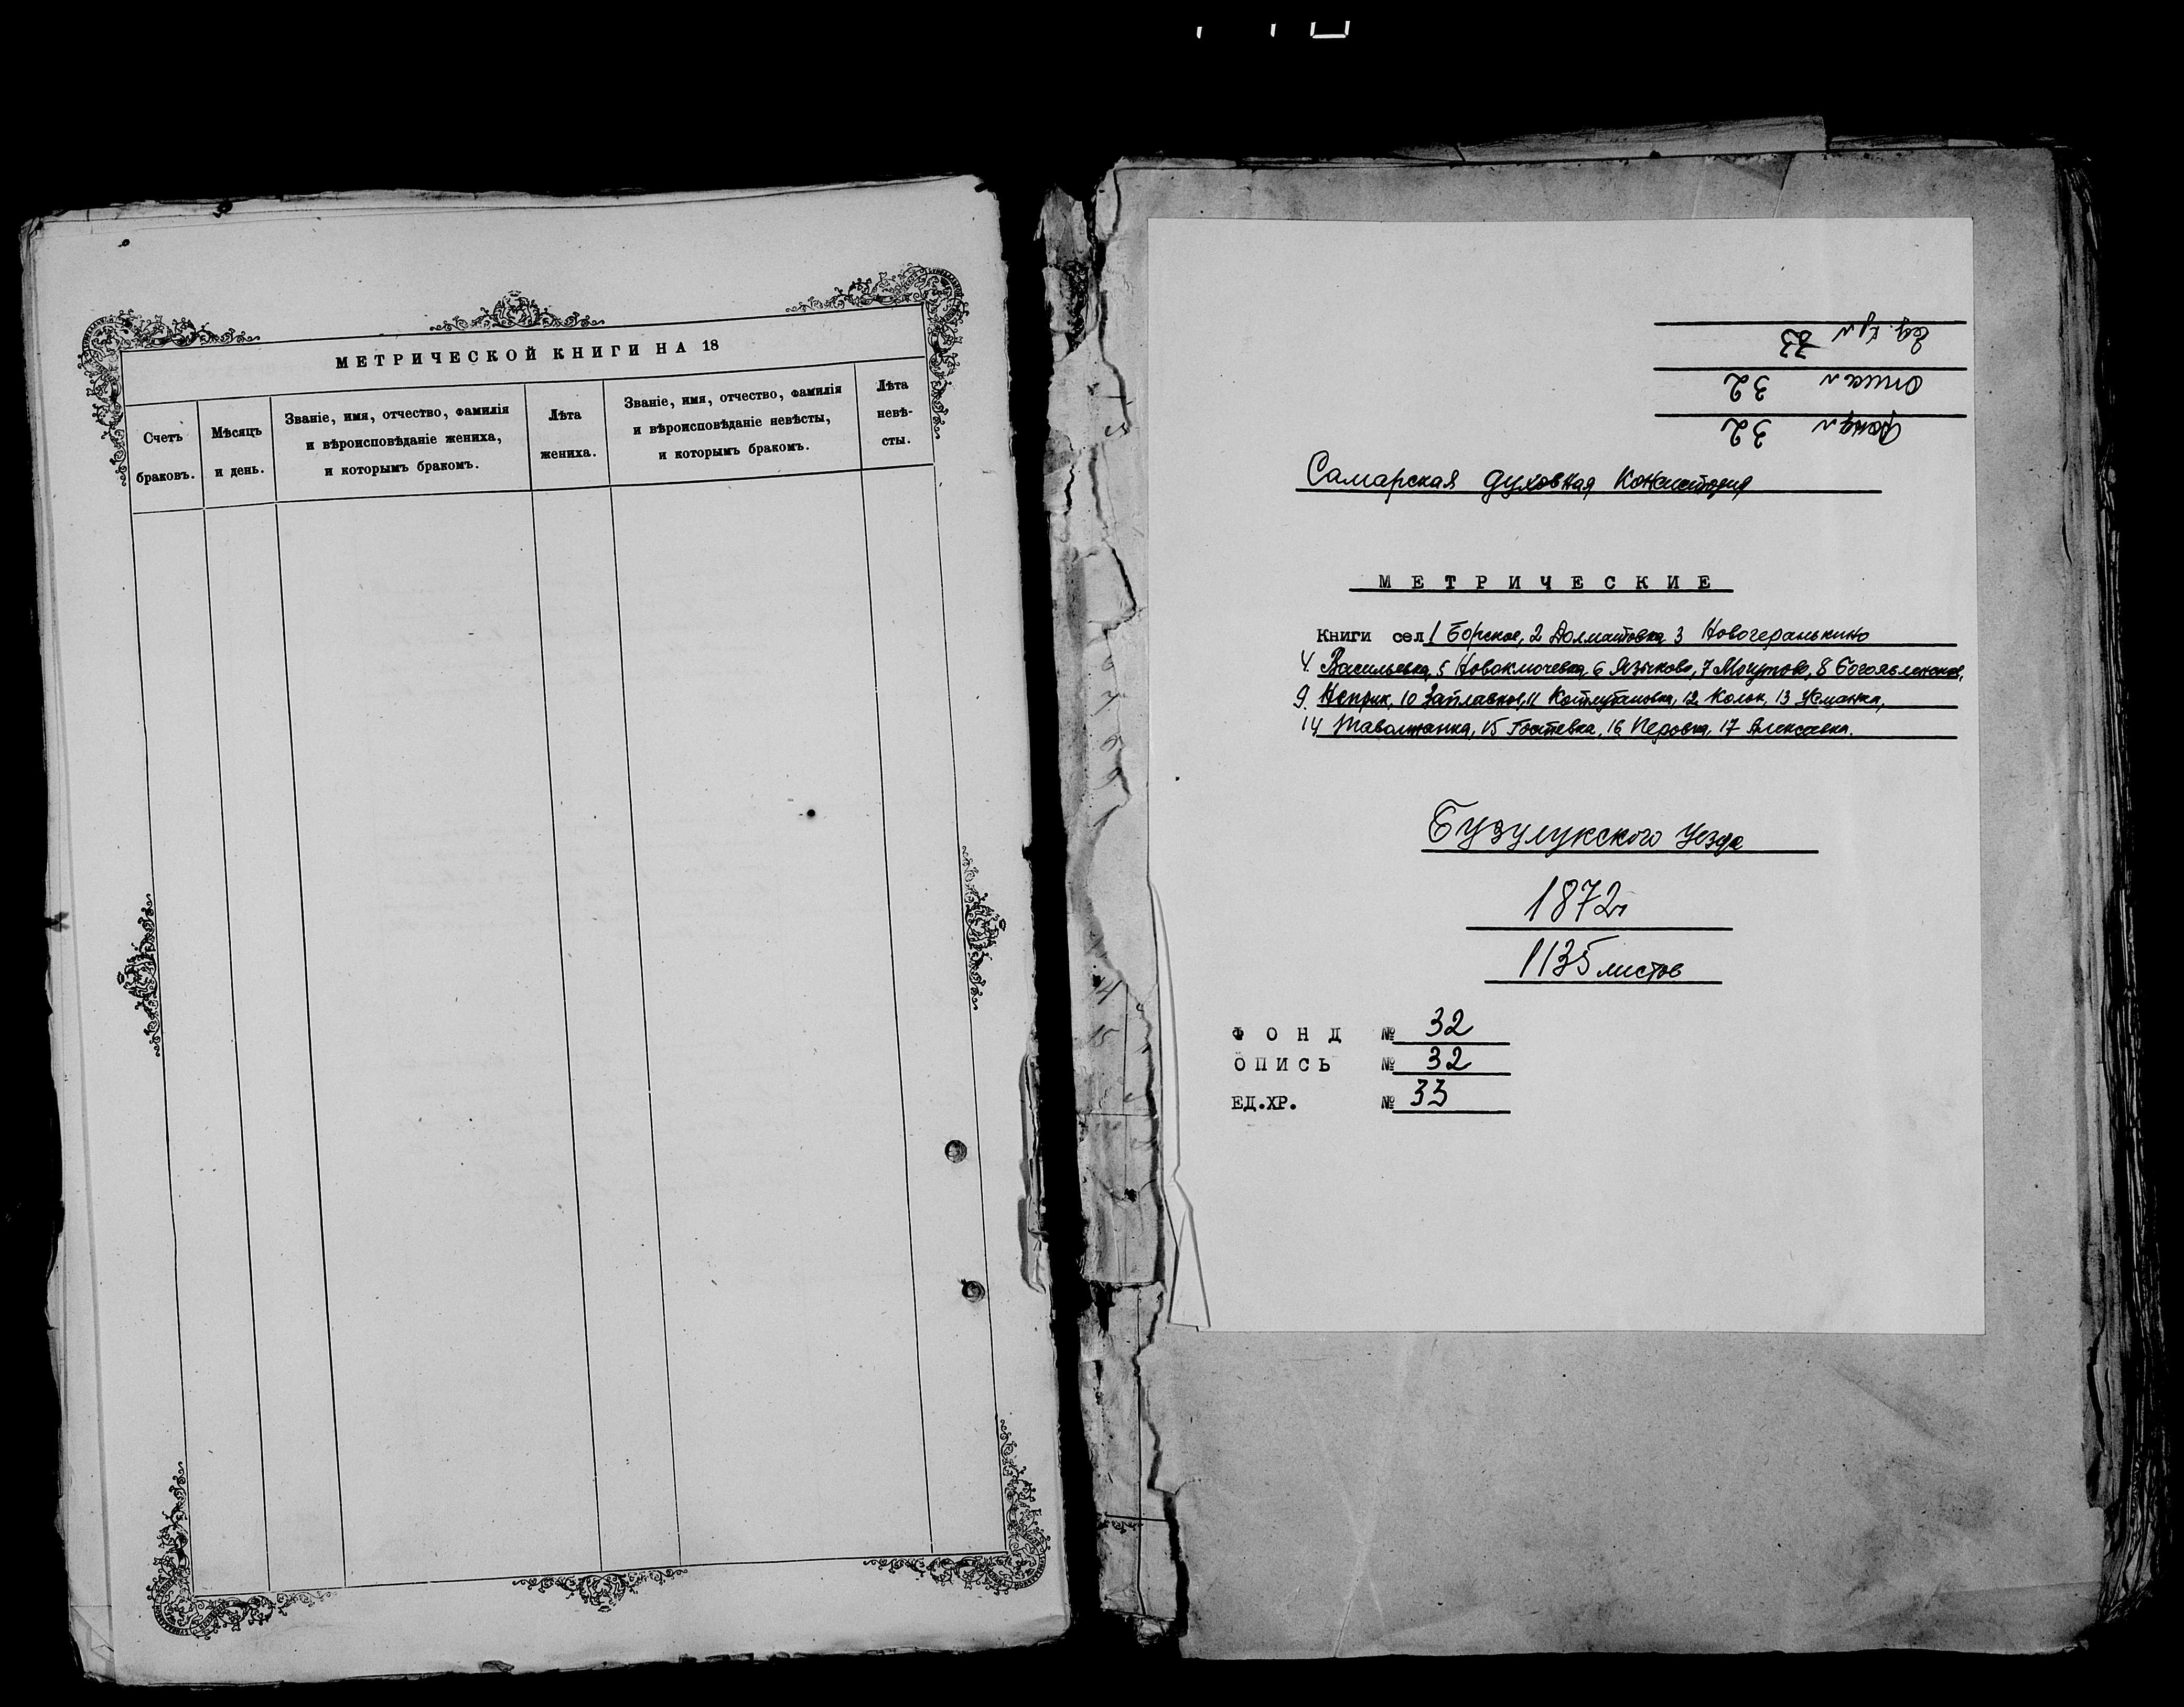 МЕТРИЧЕСКОЙ КНИГИ НА 18
Счетъ браковъ.
Мѣсяцъ и день.
Званіе, имя, отчество, фамилія
и вѣроисповѣданіе жениха,
и которымъ бракомъ.
Лѣта
жениха.
Званіе, имя, отчество, фамилія
и вѣроисповѣданіе невѣсты,
и которымъ бракомъ.
Лѣта
невѣ-
сты.
Фонд 32
Опись 32
Ед.хр 33
Самарская духовная Консистория
МЕТРИЧЕСКИЕ
Книги сел 1 Борское, 2 Долматовка 3 Новогеранькино
4. Васильевка, 5 Новоключевка, 6 Языково, 7 Мокутово, 8 Богоявленское,
9. Неприк, 10 Заплавное, 11 Коптлубановка, 12 Колок, 13 Усманка,
14 Таволжанка, 15 Гостевка, 16 Перовка, 17 Алексеевка.
Бузулукского Уезда
1872г
1135 листов
ФОНД № 32
ОПИСЬ № 32
ЕД.ХР. № 33
14
15